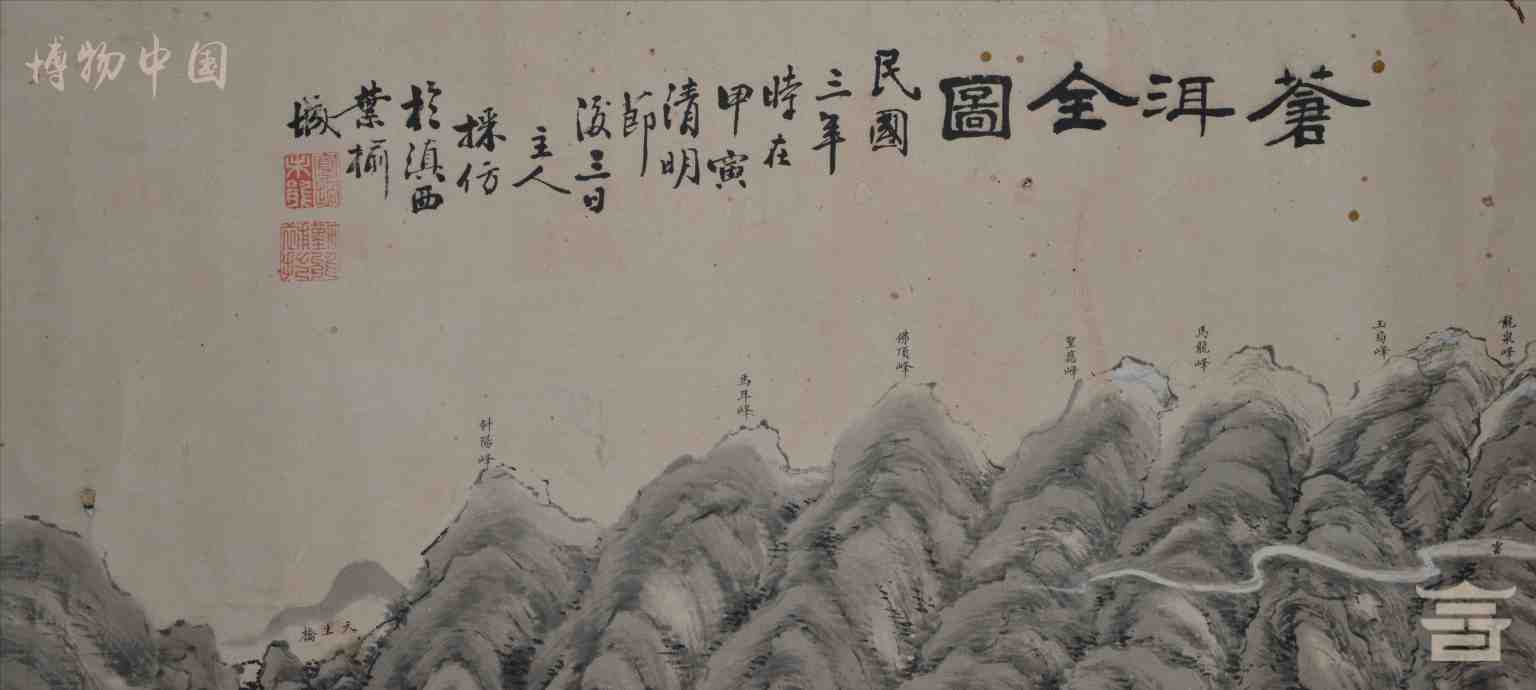 蒼洱全圖
民國
三年
時在
甲寅
清明
節
後三日
主人
採仿
於滇西
葉榆
城
龍泉峰
玉局峰
馬龍峰
聖應峰
佛頂峰
馬耳峰
斜陽峰
雲
天生橋
博物中国